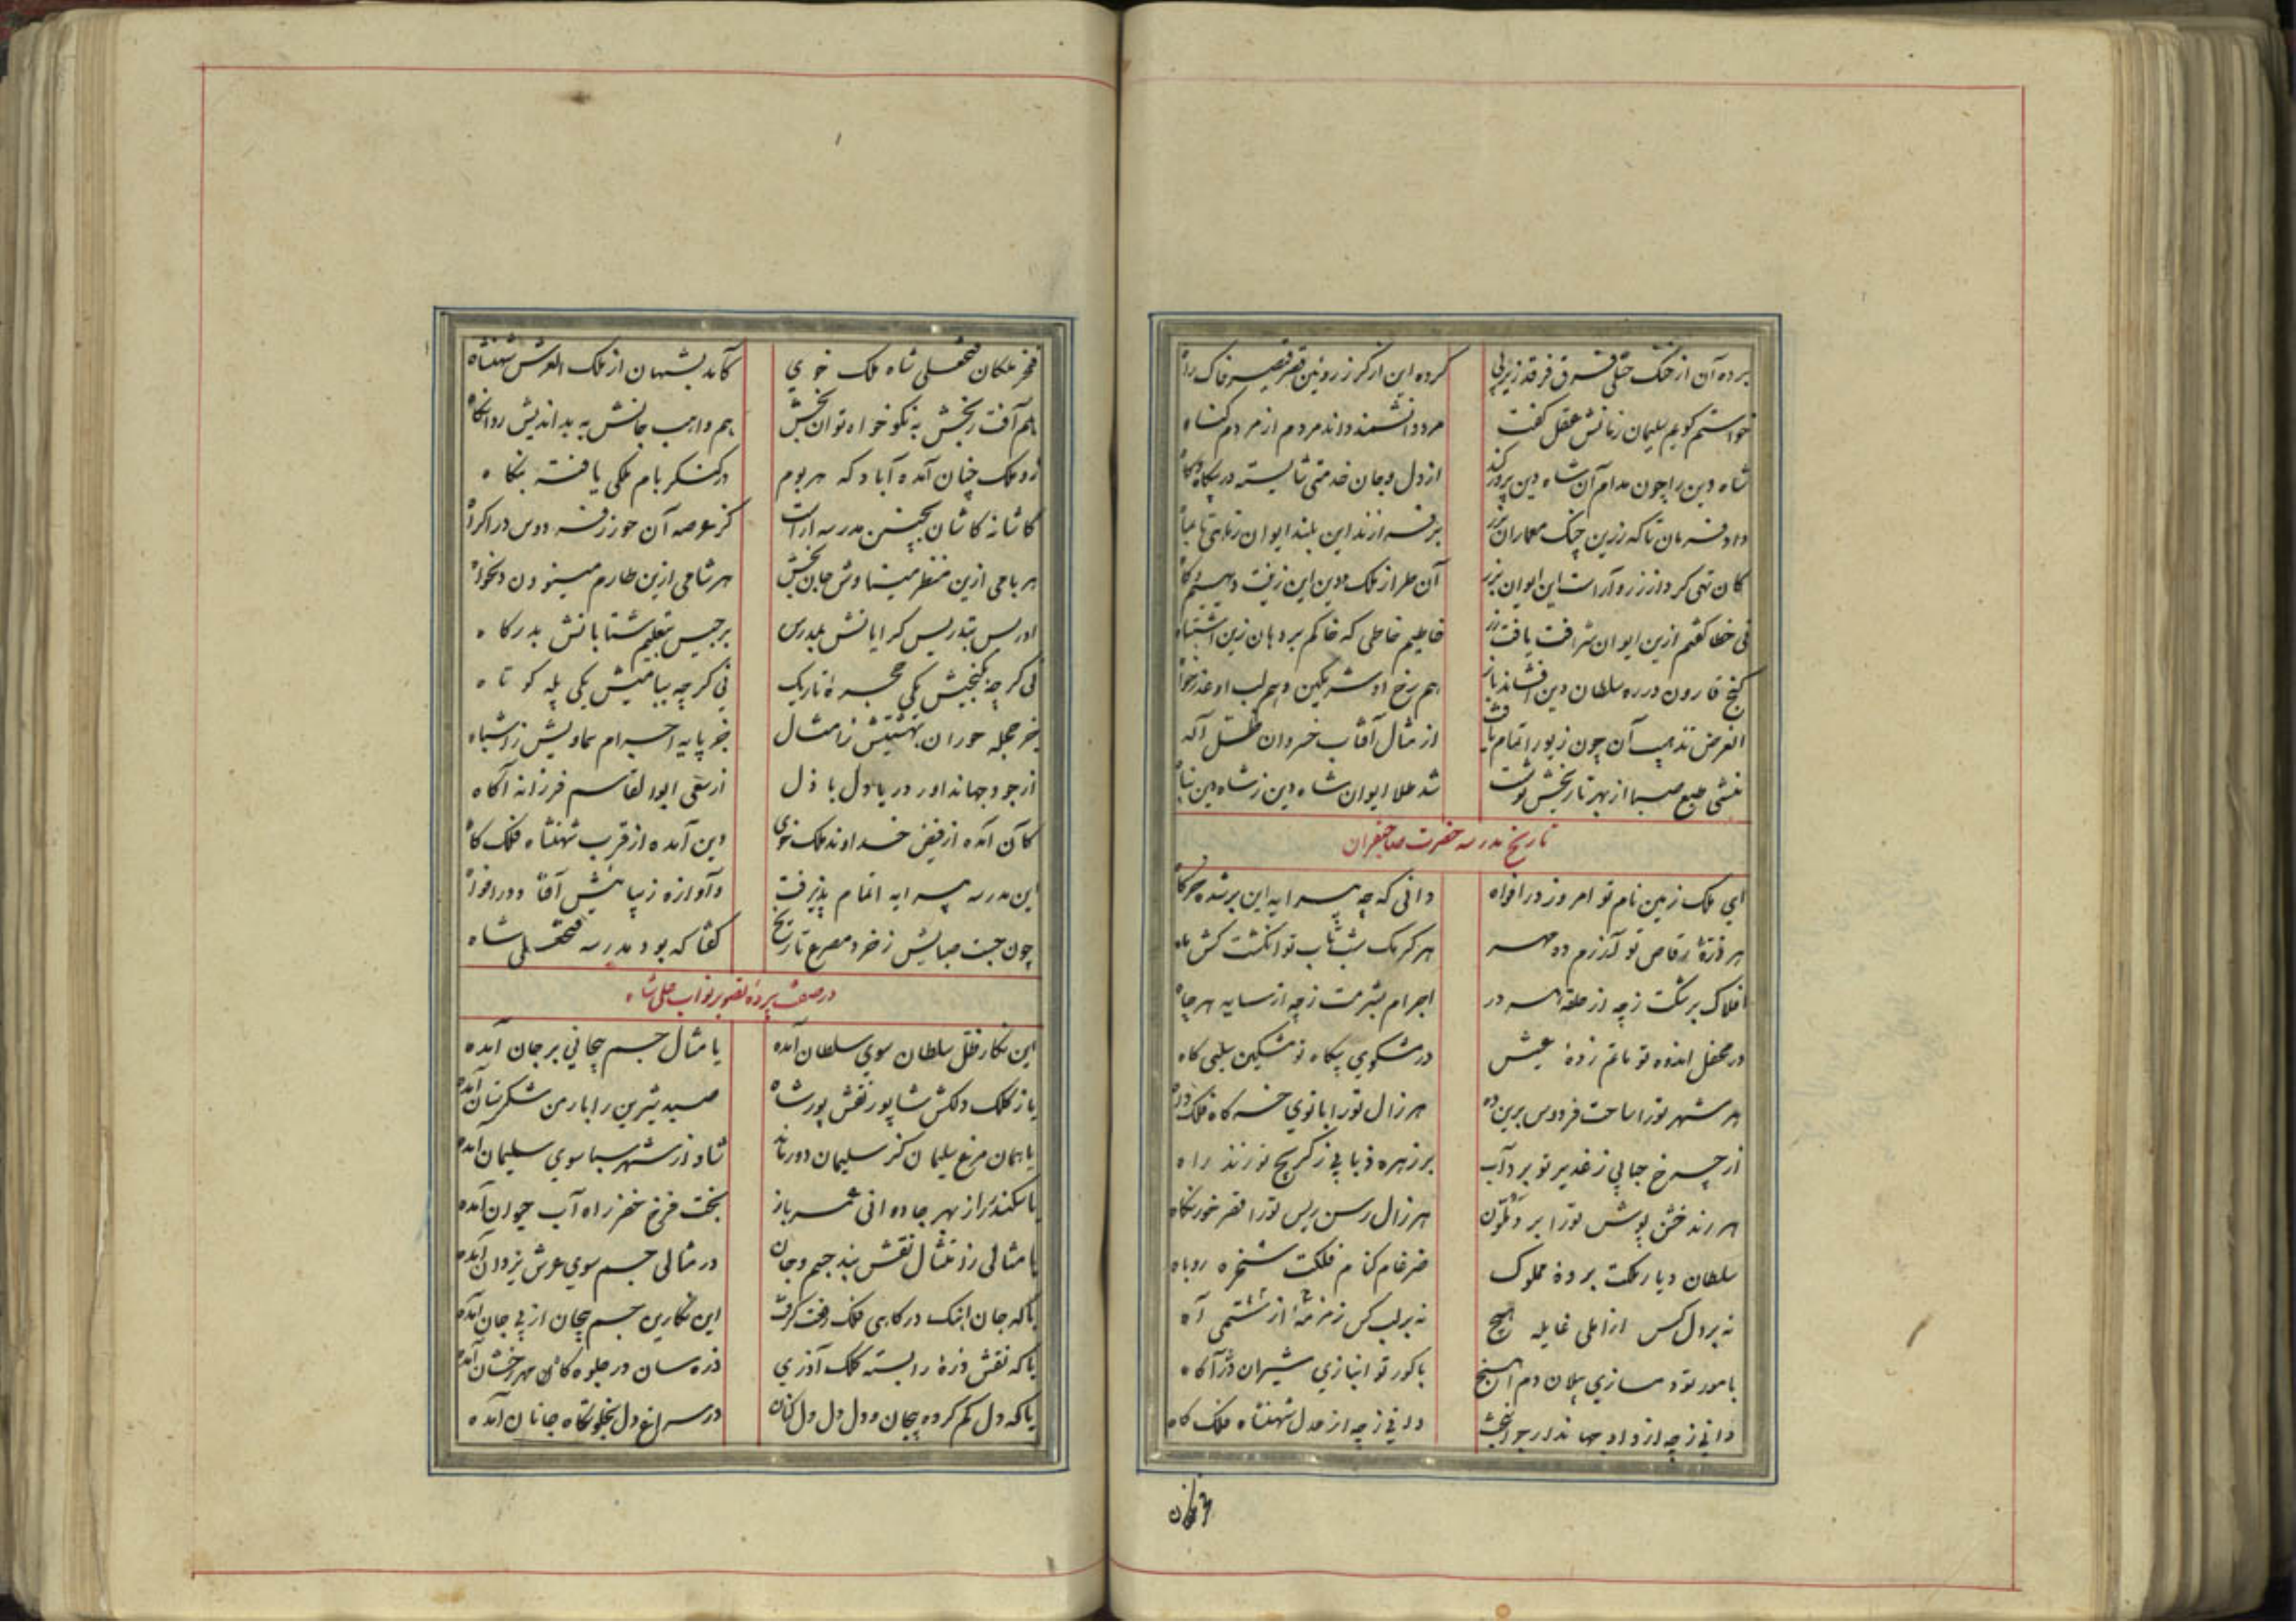 برده آن از خنگ ختلی فرق فرقد زیر پی
کرده این از گرز روئین قصر قیصر خاک راه
خواستم گویم سلیمان زمانش عقل گفت
مرد دانشمند داند مردم از مردم گیاه
شاه دین را چون مدام آن شاه دین پرور کند
از دل و جان خدمتی شایسته در بیگاه و گاه
داد فرمان تا که زرین چنگ معماران بزر
برفرازند این بلند ایوان ز ماهی تا بماه
کان تهی کرد از زر و آراست این ایوان بزر
آن طراز ملک و دین این زینت دیهیم و گاه
نی خطا گفتم ازین ایوان شرافت یافت زر
خاطیم خاطی که خاکم بر دهان زین اشتباه
گنج قارون در ره سلطان دین افشاند باز
هم رخ او شرمگین و هم لب او عذرخواه
الغرض تذهیب آن چون زیور اتمام یافت
از مثال آفتاب خسروان ظل اله
منشی طبع صبا از بهر تاریخش نوشت
شد طلا ایوان شاه دین ز شاه دین پناه
تاریخ مدرسه حضرت صاحبقران
ای ملک زمین نام تو امروز در افواه
دانی که چه پیرایه این بر شده خرگاه
هر ذره رقاص تو آزرم ده مهر
هر کرمک شب تاب تو انگشت کش ماه
افلاک برشکت ز چه از حلقه هر در
اجرام بشرمت ز چه از سایه هر چاه
در محفل اندوه تو ماتم زده عیش
در مشکوی بیگاه تو مشکین سلبی گاه
هر شهر تو را ساحت فردوس برین ده
هر زال تو را بانوی خرگاه فلک داه
از چرخ حبابی ز غدیر تو برد آب
بر زهره ذبابی ز کریچ تو زند راه
هر رند خشن پوش تو را بر
هر زال رسن ریس تو را قصر خورنگاه
سلطان دیار ملکت برده مملوک
ضرغام کنام فلکت سخره روباه
نه بر دل کس از املی غایله هیچ
نه بر لب کس زمزمه از ستمی آه
با مور تو دمسازی پیلان دم آهنج
با گور تو انبازی شیران دژآگاه
دانی ز چه از داد جهاندار جوانبخت
دانی ز چه از عدل شهنشاه فلک گاه
فخر ملکان فتحعلی شاه ملک خوی
کآمد بشهان از ملک العرش شهنشاه
هم آفت رنجش به نکو خواه توان بخش
هم واهب جانش به بداندیش روانکاه
زو ملک چنان آمده آباد که هر بوم
در کنگر بام ملکی یافته بنگاه
کاشانه کاشان بچنین مدرسه آراست
کز عرصه آن حور ز فردوس در اکراه
هر بامی ازین منظر مینا وش جان بخش
هر شامی ازین طارم مینو ون دلخواه
ادریس بتدریس گرایانش بمدرس
برجیس بتعلیم شتابانش بدرگاه
نی گر چه بگنجیش یکی حجره تاریک
نی گر چه ببامیش یکی پله کوتاه
جز حجله حوران بهشتیش ز امثال
جز پایه اجرام سماویش ز اشباه
از جود جهانداور دریا دل باذل
از سعی ابوالقاسم فرزانه آگاه
کآن آمده از فیض خداوند ملک خوی
وین آمده از قرب شهنشاه فلک گاه
این مدرسه پیرایه اتمام پذیرفت
وآوازه زیبائیش آفاق و در افواه
چون جست صبایش ز خرد مصرع تاریخ
گفتا که بود مدرسه فتحعلی شاه
در صفت پرده تصویر نواب علی شاه
این نگار ظل سلطان سوی سلطان آمده
یا مثال جسم بیجانی بر جان آمده
یا ز کلک دلکش شاپور نقش پور شاه
صید شیرین را بارمن شکرستان آمده
یا همان مرغ سلیمان کز سلیمان دور ماند
شاد از شهر سبا سوی سلیمان آمده
یا سکندر را ز بهر جاودانی عمر باز
بخت فرخ خضر راه آب حیوان آمده
یا مثالی ز امتثال نقش بند جسم و جان
در مثالی جسم سوی عرش یزدان آمده
یا که جان اینک درگاهی فلک رفعت گرفت
این نگارین جسم بیجان از پی جان آمده
یا که نقش ذره را بسته کلک آذری
ذره سان در جلوه گاه مهر رخشان آمده
یا که دل گم کرده بیجان و دل دل دل کنان
در سراغ دل بخلوتگاه جانان آمده